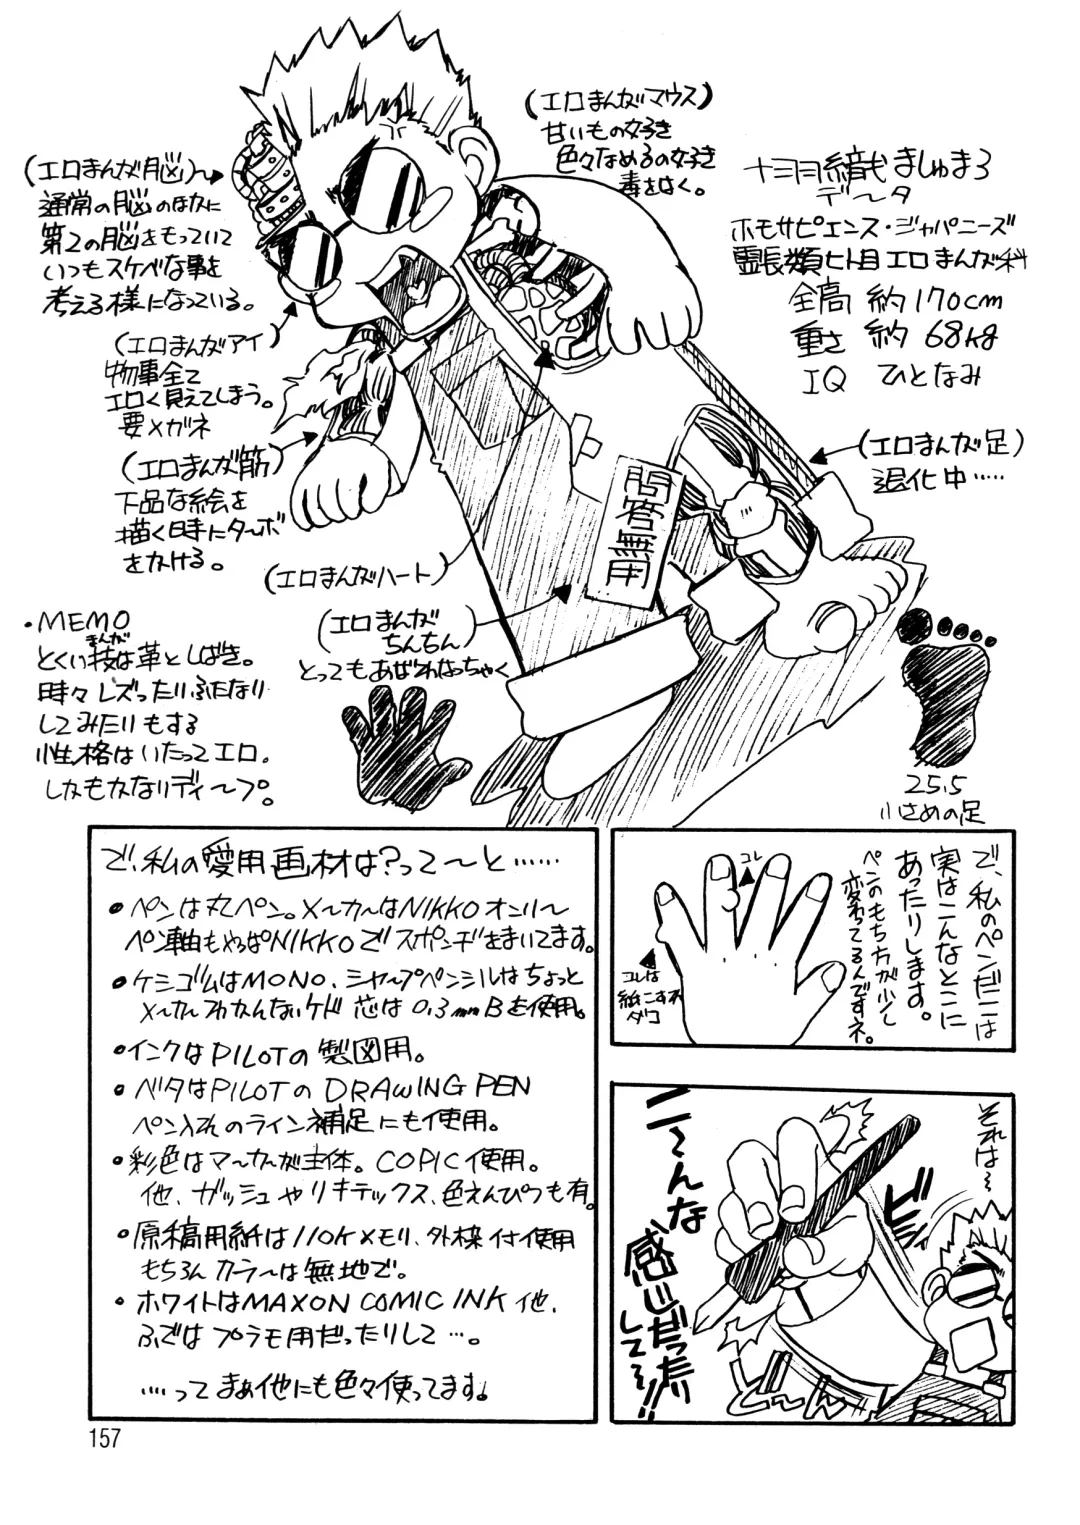 (エロまんがマウス)
甘いもの好き
色々なめるの好き
毒をはく。
ましゅまろ
データ
ホモサピエンス・ジャパニーズ
霊長類ヒト目エロまんが科
全高 約170cm
重さ 約68kg
IQ ひとなみ
(エロまんが脳)
通常の脳のほかに
第2の脳をもっていて
いつもスケベな事を
考える様になっている。
(エロまんがアイ)
物事全て
エロく見えてしまう。
要メガネ
(エロまんが筋)
下品な絵を
描く時にターボ
をかける。
(エロまんが足)
退化中……
問答無用
(エロまんがハート)
(エロまんが
ちんちん)
とってもあばれねっちゃく
・MEMO
まんが
とくい技は革としばき。
時々レズったりふたなり
してみたりもする
性格はいたってエロ。
しかもかなりディープ。
25.5
小さめの足
で、私の愛用画材は?って〜と……
・ペンは丸ペン。メーカーはNIKKOオンリー
ペン軸もやっぱNIKKOでスポンヂをまいてます。
・ケシゴムはMONO、シャープペンシルはちょっと
メーカーわかんないケド 芯は0.3mmBを使用。
・インクはPILOTの製図用。
・ベタはPILOTのDRAWING PEN
ペン入れのライン補足にも使用。
・彩色はマーカーが主体。COPIC使用。
他、ガッシュやリキテックス、色えんぴつも有。
・原稿用紙は110Kメモリ、外枠付使用
もちろんカラーは無地で。
・ホワイトはMAXON COMIC INK他、
ふではプラモ用だったりして…。
……ってまぁ他にも色々使ってます。
で、私のペンだこは
実はこんなとこに
あったりします。
ペンのもち方が少し
変わってるんですネ。
コレ
コレは
紙こすれ
ダコ
それは〜
ビビ
ニ〜んな
感じだったり
して〜!!
ど〜ん
157